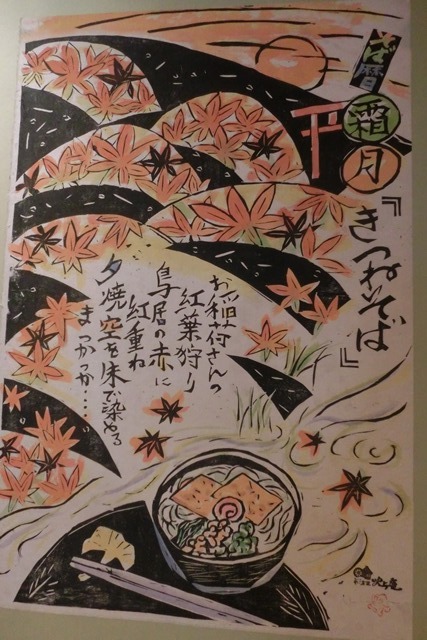 そば暦
霜月
『きつねそば』
お稲荷さんの
紅葉狩り
鳥居の赤に
紅重ね
夕焼空を朱で染める
まっかっか……